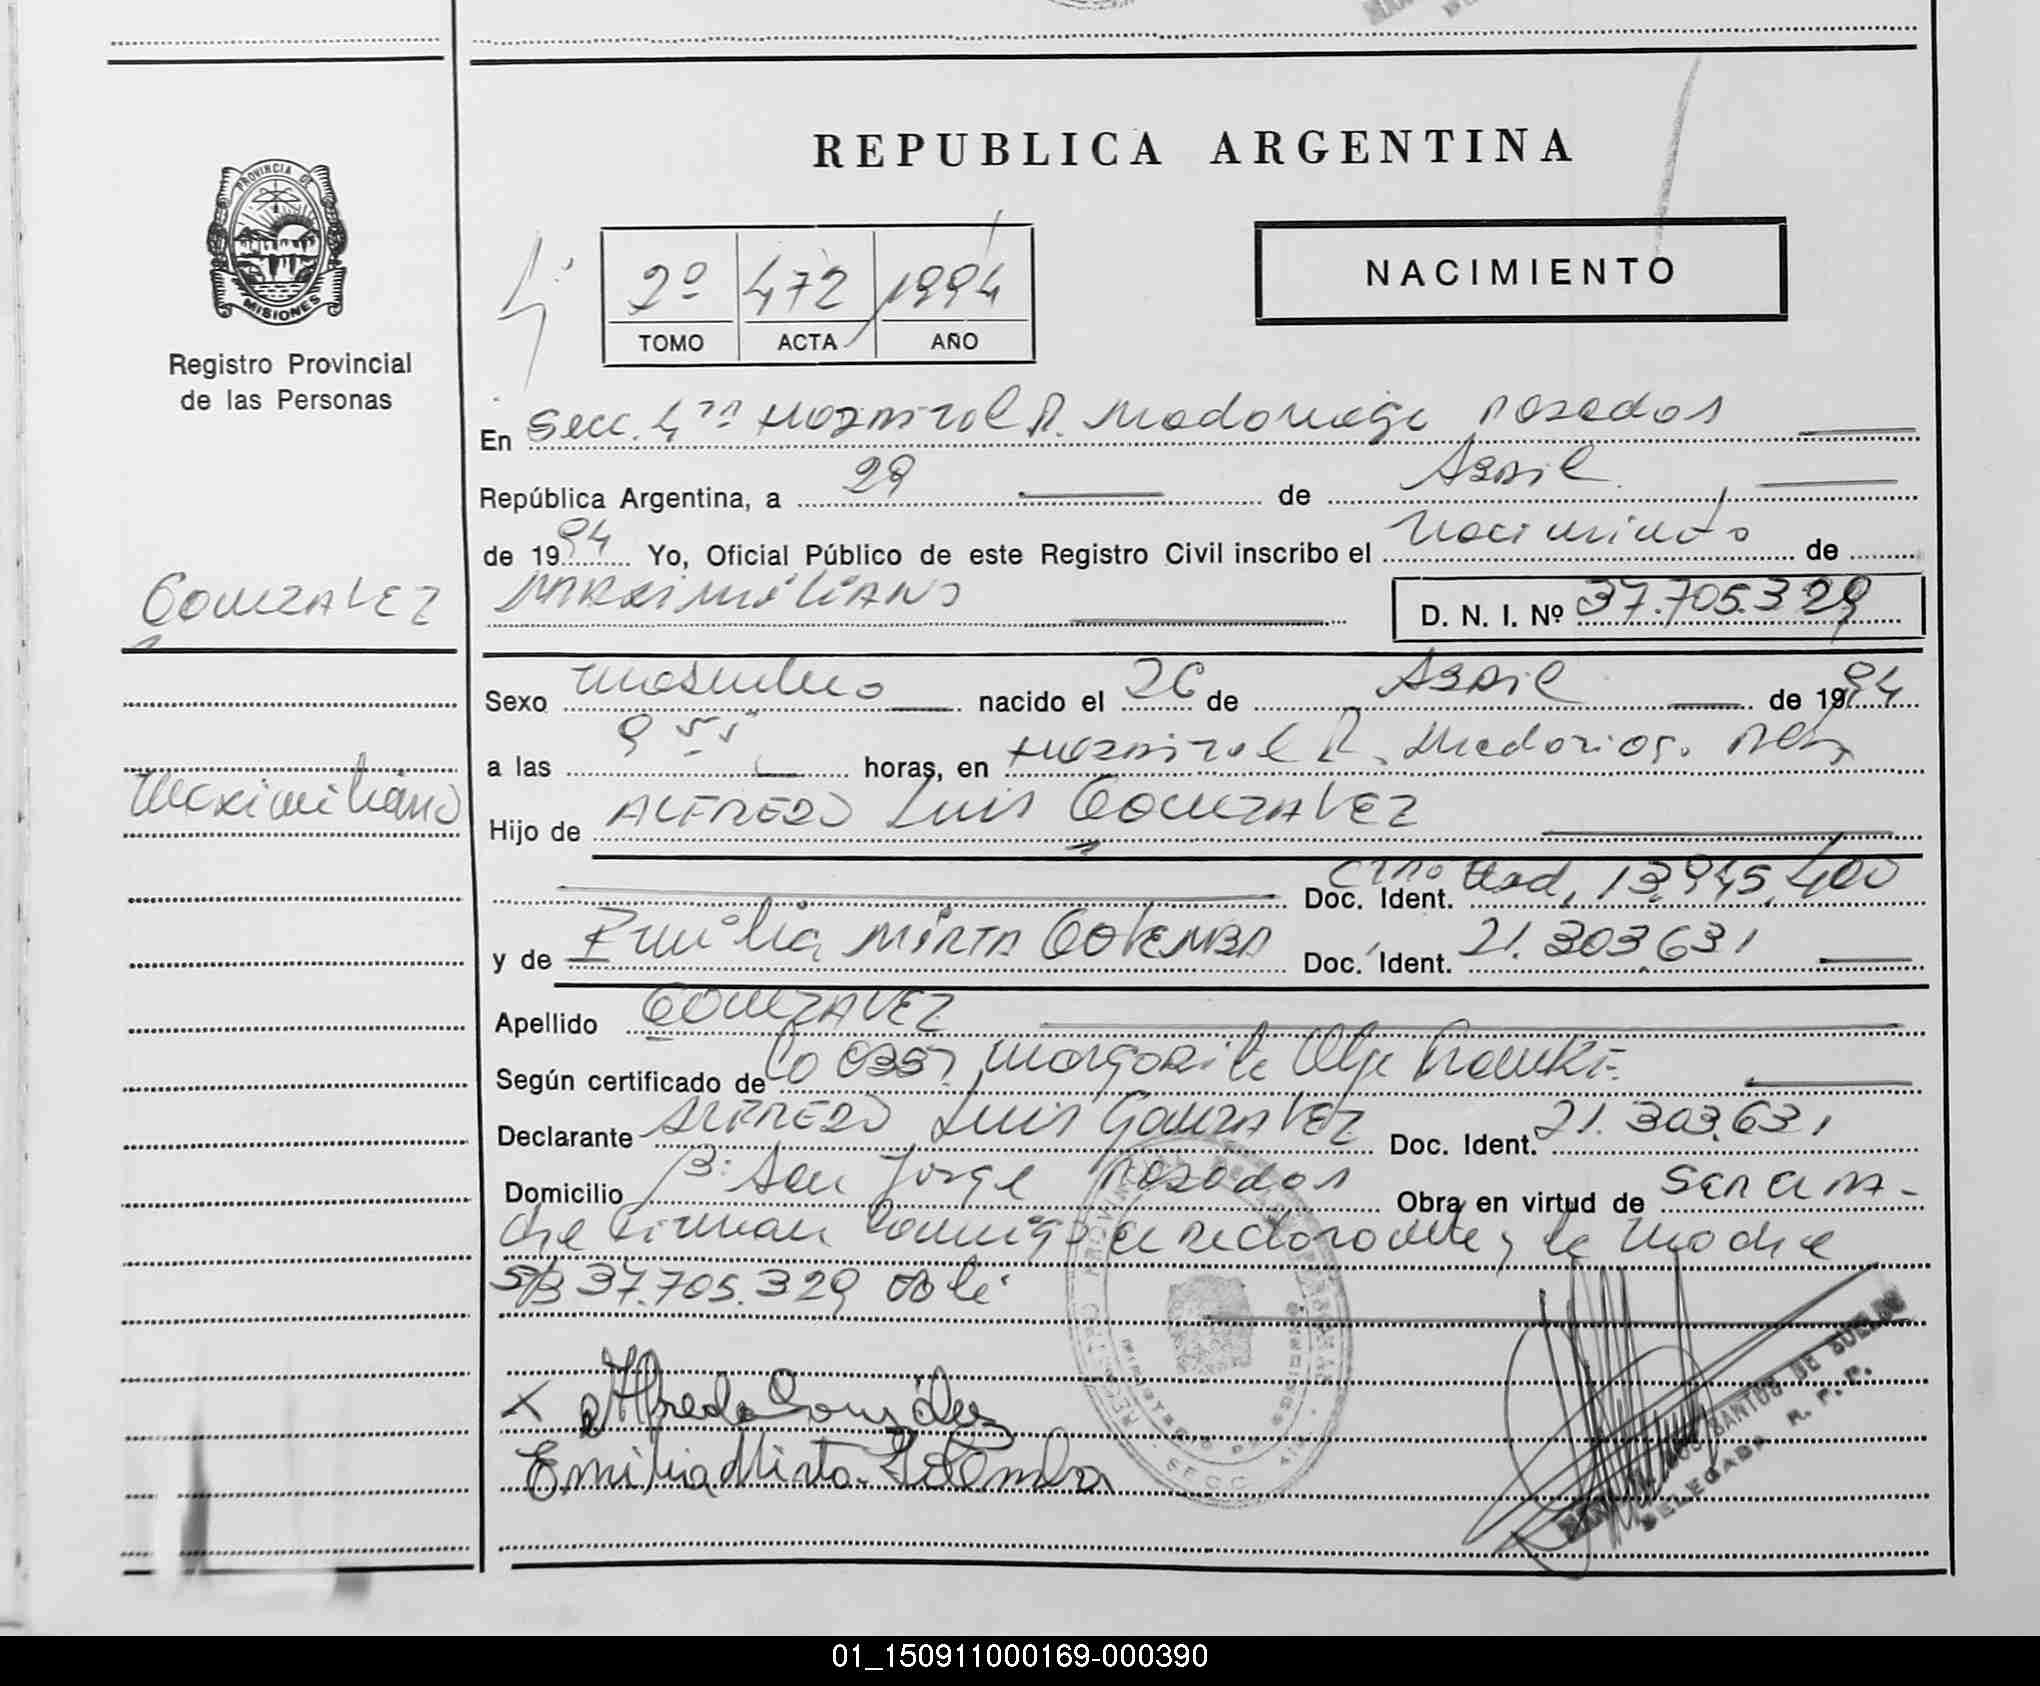 PROVINCIA DE
MISIONES
Registro Provincial
de las Personas
GONZALEZ
Maximiliano
REPUBLICA ARGENTINA
2º 472 1994
TOMO ACTA AÑO
NACIMIENTO
En Secc. 4ta Hospital R. Madariaga Posadas
República Argentina, a 29 de Abril
de 1994 Yo, Oficial Público de este Registro Civil inscribo el Nacimiento de
MAXIMILIANO D. N. I. Nº 37.705.329
Sexo Masculino nacido el 26 de Abril de 1994
a las 9 55 horas, en Hospital R. Madariaga
Hijo de ALFREDO Luis GONZALEZ
Doc. Ident. 13.945.400
y de Emilia MIRTA GOLEMBA Doc. Ident. 21.303.631
Apellido GONZALEZ
Según certificado de la Obst. Margarita Olga
Declarante ALFREDO Luis GONZALEZ Doc. Ident. 21.303.631
Domicilio B: San Jorge Posadas Obra en virtud de
firman conmigo el declarante y la madre
S/B 37.705.329 Vale
x Alfredo González
Emilia Mirta Golemba
SANTOS DE
DELEGADA R. P. P.
01_150911000169-000390